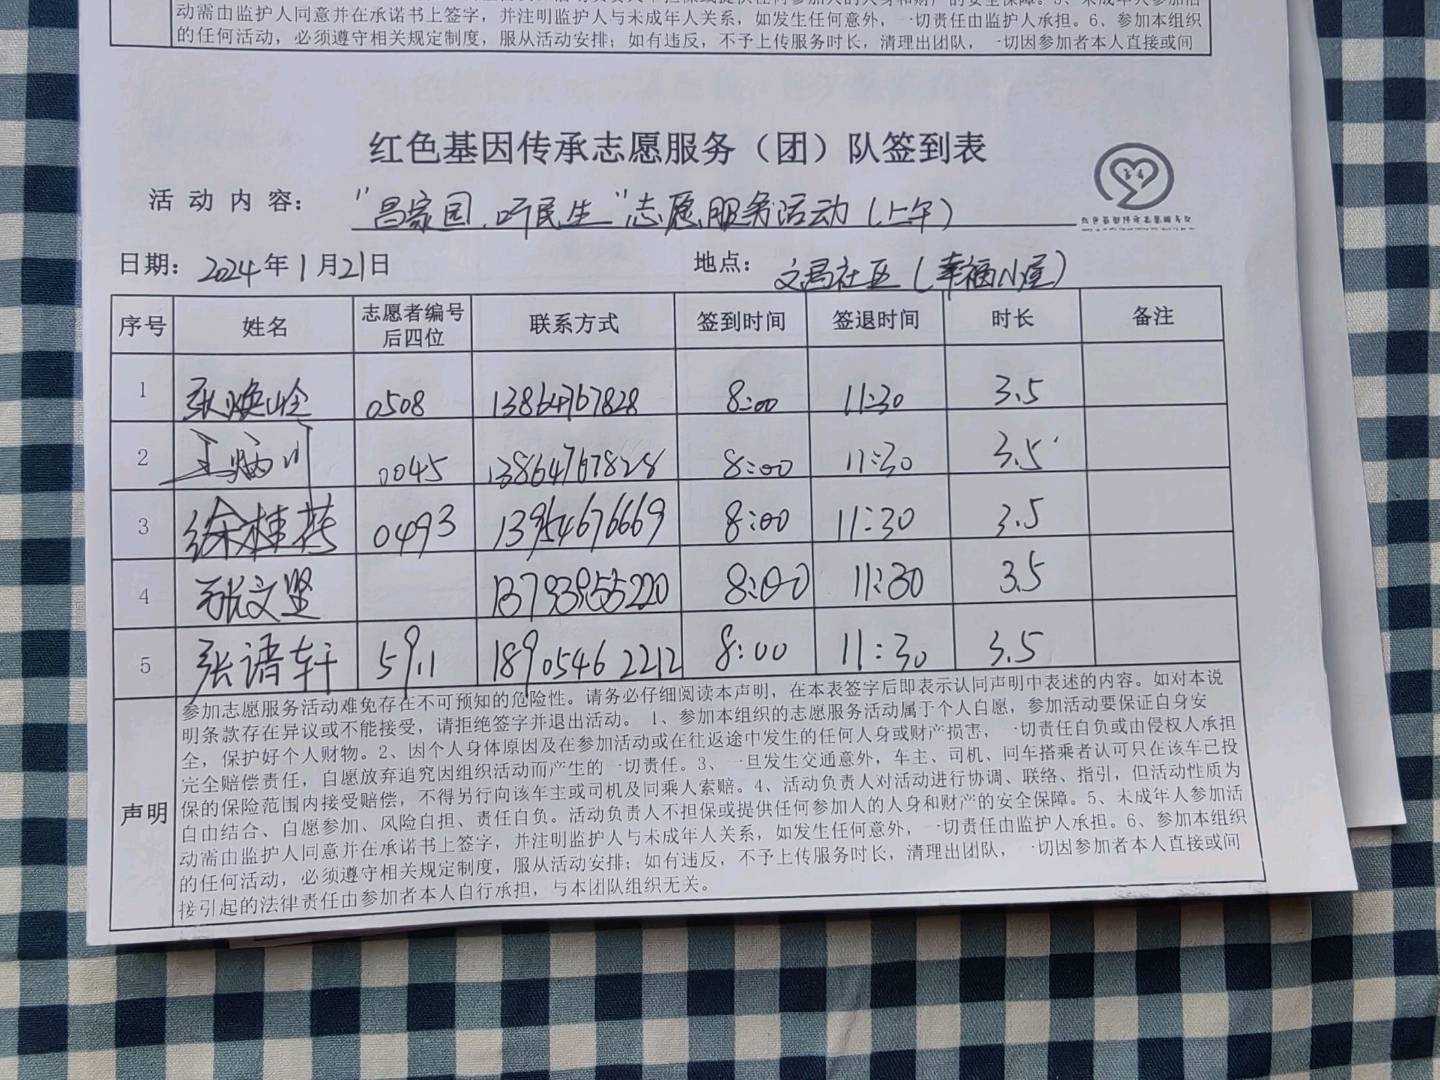 动需由监护人同意并在承诺书上签字，并注明监护人与未成年人关系，如发生任何意外，一切责任由监护人承担。6、参加本组织
的任何活动，必须遵守相关规定制度，服从活动安排；如有违反，不予上传服务时长，清理出团队，一切因参加者本人直接或间
红色基因传承志愿服务（团）队签到表
活动内容： “昌家园.听民生”志愿服务活动（上午）
日期：2024年1月21日 地点：文昌社区（幸福小屋）
序号 姓名 志愿者编号后四位 联系方式 签到时间 签退时间 时长 备注
1 0508 13864767828 8:00 11:30 3.5
2 王炳川 0045 13864767828 8:00 11:30 3.5
3 徐桂芬 0493 13954676669 8:00 11:30 3.5
4 张文坚 13793955220 8:00 11:30 3.5
5 张清轩 5911 18905462212 8:00 11:30 3.5
声明
参加志愿服务活动难免存在不可预知的危险性。请务必仔细阅读本声明，在本表签字后即表示认同声明中表述的内容。如对本说
明条款存在异议或不能接受，请拒绝签字并退出活动。1、参加本组织的志愿服务活动属于个人自愿，参加活动要保证自身安
全，保护好个人财物。2、因个人身体原因及在参加活动或在往返途中发生的任何人身或财产损害，一切责任自负或由侵权人承担
完全赔偿责任，自愿放弃追究因组织活动而产生的一切责任。3、一旦发生交通意外，车主、司机、同车搭乘者认可只在该车已投
保的保险范围内接受赔偿，不得另行向该车主或司机及同乘人索赔。4、活动负责人对活动进行协调、联络、指引，但活动性质为
自由结合、自愿参加、风险自担、责任自负。活动负责人不担保或提供任何参加人的人身和财产的安全保障。5、未成年人参加活
动需由监护人同意并在承诺书上签字，并注明监护人与未成年人关系，如发生任何意外，一切责任由监护人承担。6、参加本组织
的任何活动，必须遵守相关规定制度，服从活动安排；如有违反，不予上传服务时长，清理出团队，一切因参加者本人直接或间
接引起的法律责任由参加者本人自行承担，与本团队组织无关。